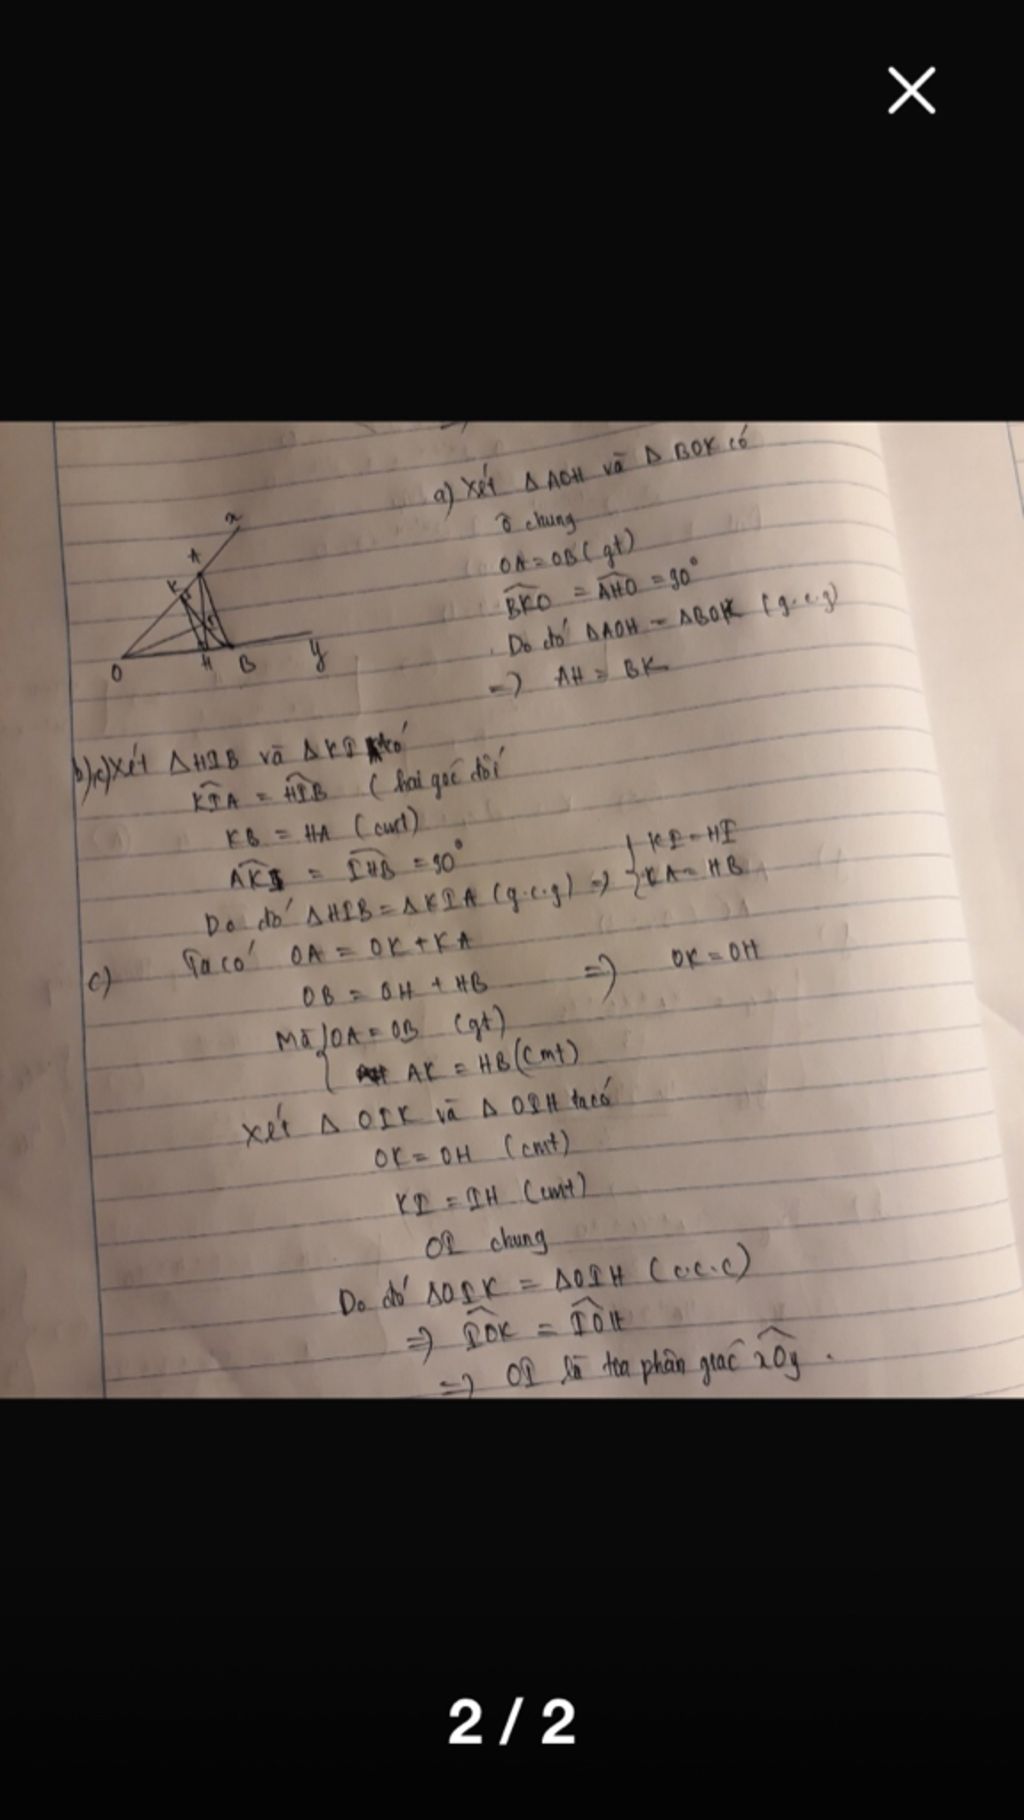 a) Xét Δ AOH và Δ BOK có
Ô chung
OA = OB (gt)
BKO = AHO = 90°
Do đó ΔAOH = ΔBOK (g.c.g)
=> AH = BK
x
A
K
O
H
B
y
b)c)Xét ΔHIB và ΔKI có
KIA = HIB (hai góc đối
KB = HA (cmt)
AKI = IHB = 90°
Do đó ΔHIB = ΔKIA (g.c.g) => { KI = HI
KA = HB
c) Ta có OA = OK + KA
OB = OH + HB => OK = OH
Mà { OA = OB (gt)
AK = HB (cmt)
Xét Δ OIK và Δ OIH ta có
OK = OH (cmt)
KI = IH (cmt)
OI chung
Do đó ΔOIK = ΔOIH (c.c.c)
=> IOK = IOH
=> OI là tia phân giác xOy.
2 / 2